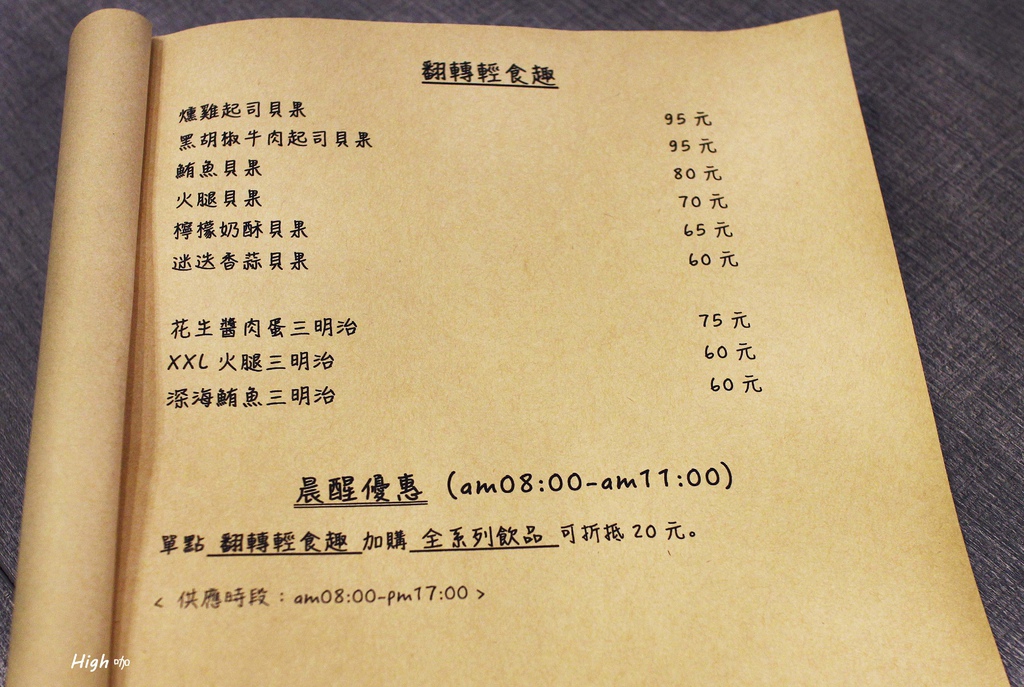 翻轉輕食趣
燻雞起司貝果 95 元
黑胡椒牛肉起司貝果 95 元
鮪魚貝果 80 元
火腿貝果 70 元
檸檬奶酥貝果 65 元
迷迭香蒜貝果 60 元
花生醬肉蛋三明治 75 元
XXL 火腿三明治 60 元
深海鮪魚三明治 60 元
晨醒優惠 (am08:00-am11:00)
單點 翻轉輕食趣 加購 全系列飲品 可折抵 20 元。
< 供應時段：am08:00-pm17:00 >
High 咖